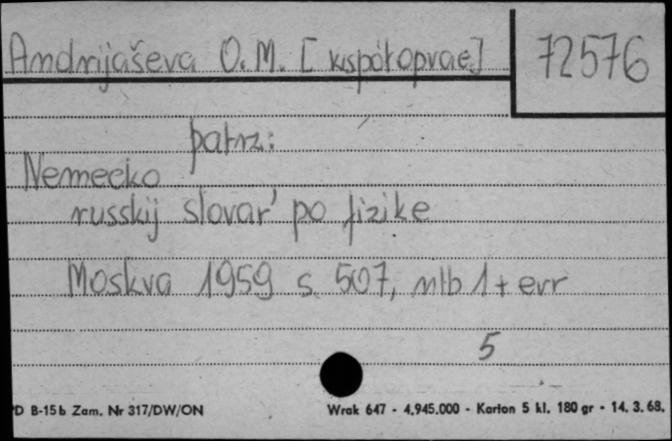 Andrijaševa O.M. [współoprac.]
72576
patrz:
Nemecko
russkij slovar' po fizike
Moskva 1959 s. 507, nlb 1 + err
5
PD B-15b Zam. Nr 317/DW/ON
Wrak 647 - 4.945.000 - Karton 5 kl. 180 gr - 14. 3. 68.